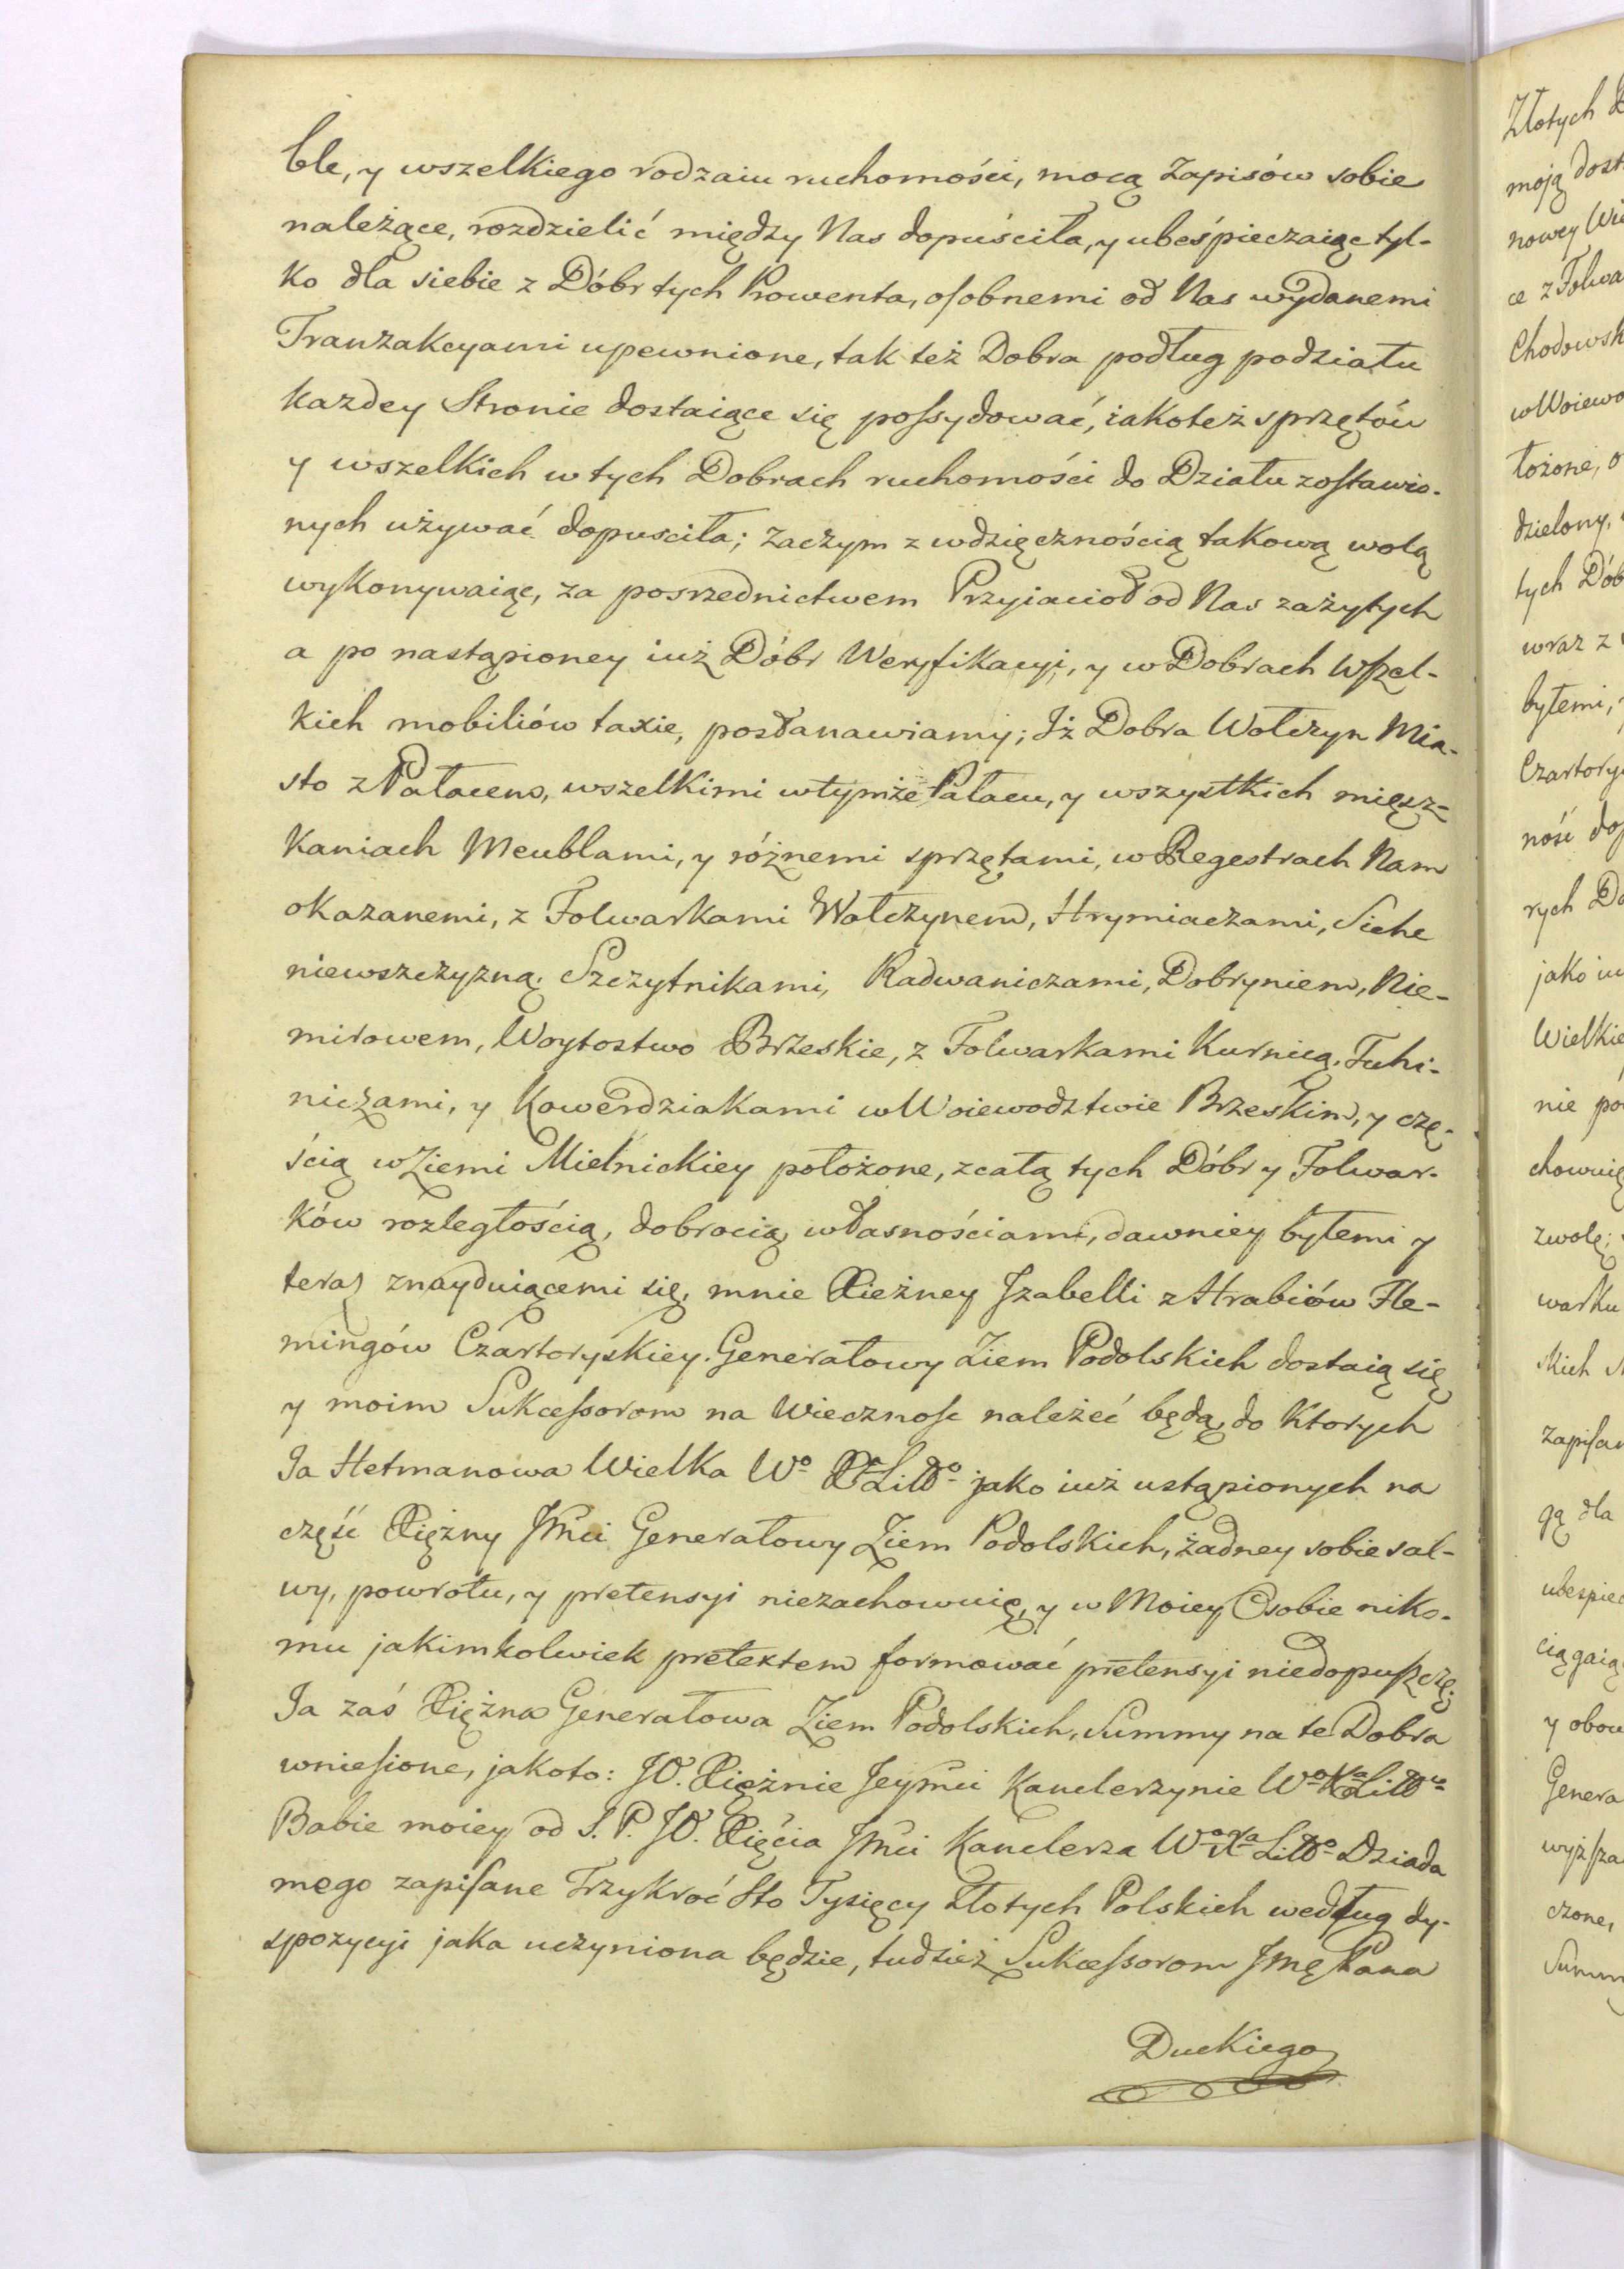 ble, y wszelkiego rodzaiu ruchomości, mocą Zapisów sobie
należące, rozdzielić między Nas dopuściła, y ubeśpieczaiąc tyl-
ko dla siebie z Dóbr tych Prowenta, osobnemi od Nas wydanemi
Tranzakcyami upewnione, tak też Dobra podług podziału
każdey Stronie dostaiące się possydować, iakoteż sprzętów
y wszelkich w tych Dobrach ruchomości do Działu zostawio-
nych używać dopusciła; zaczym z wdzięcznością takową wolą
wykonywaiąc, za posrzednictwem Przyiacioł od Nas zażytych
a po nastąpioney iuż Dóbr Weryfikacyi, y w Dobrach wszel-
kich mobiliów taxie, postanawiamy; Iż Dobra Wołczyn Mia-
sto z Pałacem, wszelkimi w tymże Pałacu, y wszystkich miesz-
kaniach Meublami, y różnemi sprzętami, w Regestrach Nam
okazanemi, z Folwarkami Wołczynem, Hrymiaczami, Siehe
niewszczyzną, Szczytnikami, Radwaniczami, Dobryniem, Nie-
mirowem, Woytostwo Brzeskie, z Folwarkami Kurnicą, Tuhi-
niczami, y Kowerdziakami w Woiewodztwie Brzeskim, y czę-
ścią w Ziemi Mielnickiey położone, z całą tych Dóbr y Folwar-
ków rozległością, dobrocią, własnościami, dawniey byłemi y
teraz znayduiącemi się, mnie Xieżney Izabelli z Hrabiów Fle-
mingów Czartoryskiey. Generałowy Ziem Podolskich dostaią się
y moim Sukcessorom na Wiecznosc należeć będą, do Ktorych
Ja Hetmanowa Wielka Wo Xa Litto jako iuż ustąpionych na
część Xiężny Jmci Generałowy Ziem Podolskich, żadney sobie sal-
wy, powrotu, y pretensyi niezachowuię, y w Moiey Osobie niko-
mu jakimkolwiek pretextem formować pretensyi niedopuszczę;
Ja zaś Xiężna Generałowa Ziem Podolskich, Summy na te Dobra
wniesione, jakoto: JO. Xiężnie Jeymci Kanclerzynie Wo Xa Litto
Babie moiey od S. P. JO. Xięcia Jmci Kanclerza Wo Xa Litto Dziada
mego zapisane Trzykroć Sto Tysięcy Złotych Polskich według dy-
spozycyi jaka uczyniona będzie, tudzież Sukcessorom Jmę Pana
Duckiego
Złotych
moją
nowey
ce z Folwa
Chodowsk
w Woiewo
łożone,
dzielony,
tych Dób
wraz z
byłemi,
Czartory
ność
rych
jako
Wielkie
nie
chowuię
zwolę;
warku
skich
zapisan
gą dla
ubespiec
ciągaią
y obow
Genera
wyższa
czone,
Summ